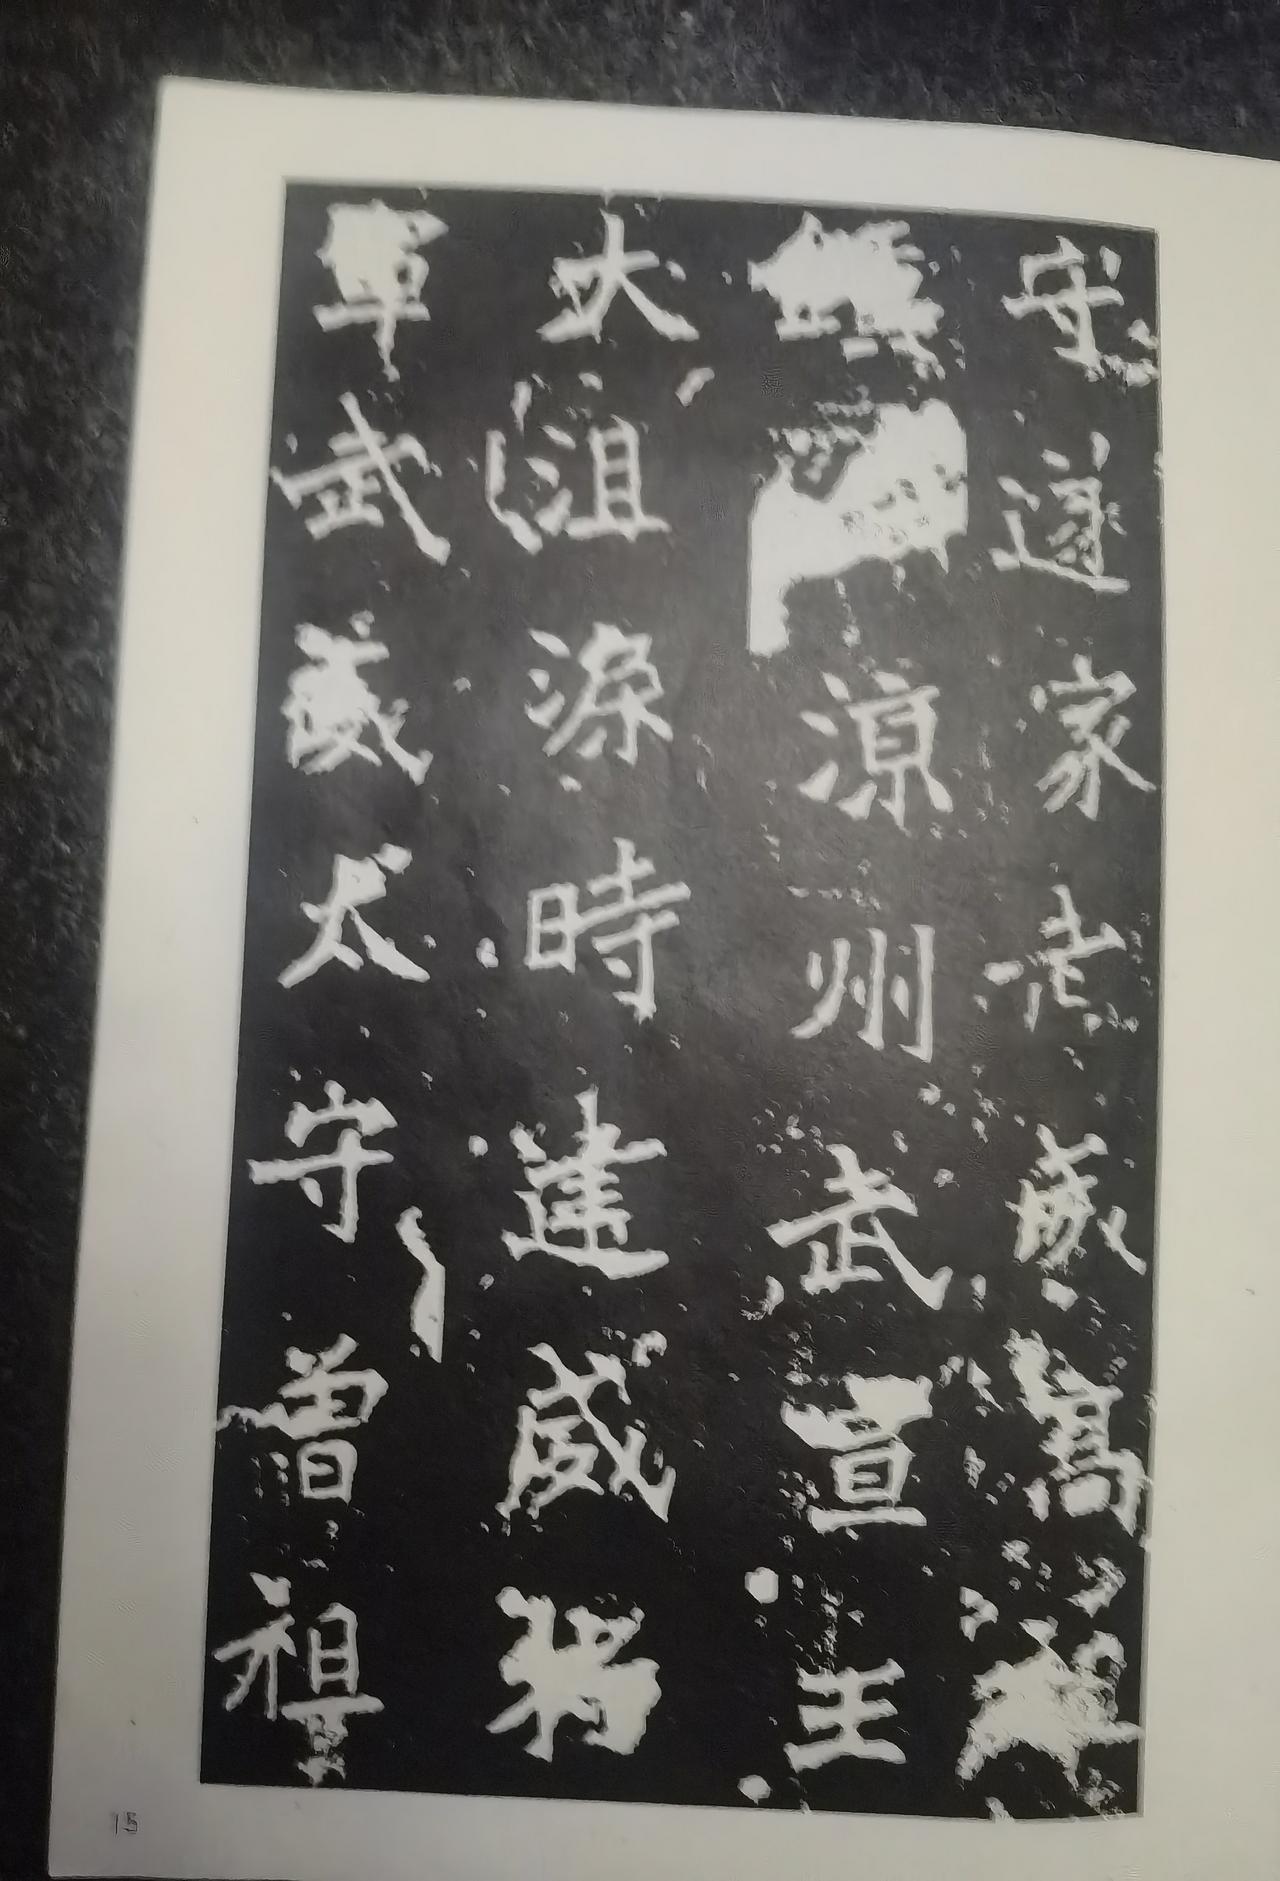 守遂家武威高
涼州武宣王
大沮渠時建威將
軍武威太守曾祖
15